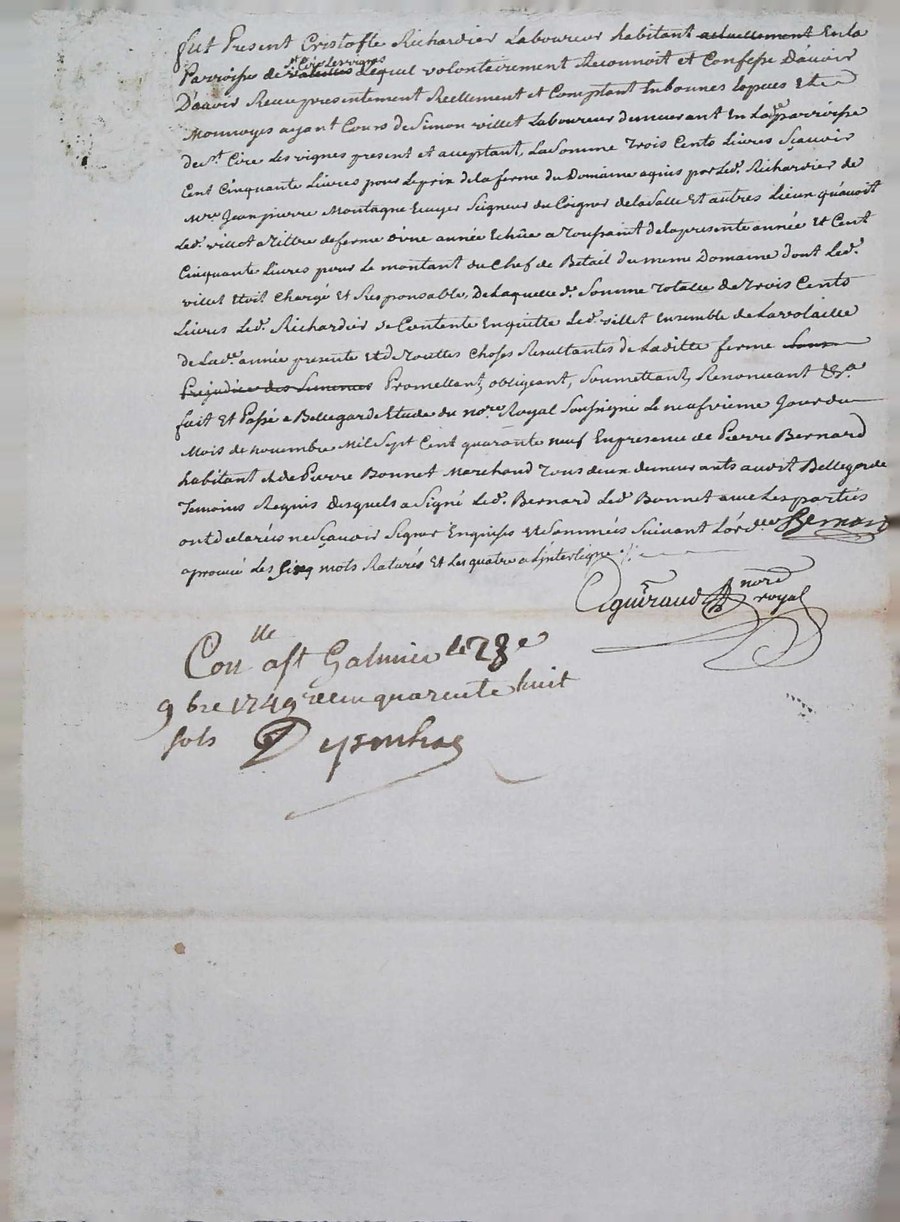 fut Present Cristofle Richardier Laboureur habitant actuellement En la
St Cire Les vignes
Parroisse de Lequel volontairement Reconnoit et Confesse D'avoir
D'avoir Receu presentement Reellement et Comptant En bonnes Espèces Et
Monnoyes ayant Cours de Simon villet Laboureur demeurant En Lad parroisse
de St Cire Les vignes present et acceptant, La Somme Trois Cents Livres Scavoir
Cent Cinquante Livres pour Le prix de la ferme du Domaine aquis par Led. Richardier de
Mre Jean pierre Montagne Ecuyer Seigneur du Coigner de la Salle Et autres Lieux qu'avoit
Led. villet a Tiltre de ferme d'une année Echüe a Toussaint de la presente année Et Cent
Cinquante Livres pour Le montant du Chef de Betail du meme Domaine dont Led.
villet Etoit Chargé Et Responsable, De Laquelle d. Somme Totalle de Trois Cents
Livres Led. Richardier se Contente En quitte Led. villet Ensemble de La volaille
de Lad. année presente Et de Touttes Choses Resultantes de Laditte ferme Sans
Prejudice des Promettant, obligeant, Soumettant, Renonceant &a
fait Et Passé a Bellegarde Etude du nore Royal Soussigné Le neufvieme Jour du
Mois de novembre Mil Sept Cent quarante neuf En presence de Pierre Bernard
habitant Et de Pierre Bonnet Marchand Tous deux demeurants audit Bellegarde
Temoins Requis Desquels a Signé Led. Bernard Led. Bonnet avec Les parties
ont declarés ne Sçavoir Signer Enquises Et Sommées Suivant L'ord. Bernard
aprouvé Les Cinq mots Raturés Et Les quatre a L'interligne
aguéraud nore royal
Con lle a St Galmier le 28e
9bre 1749 receu quarente huit
sols